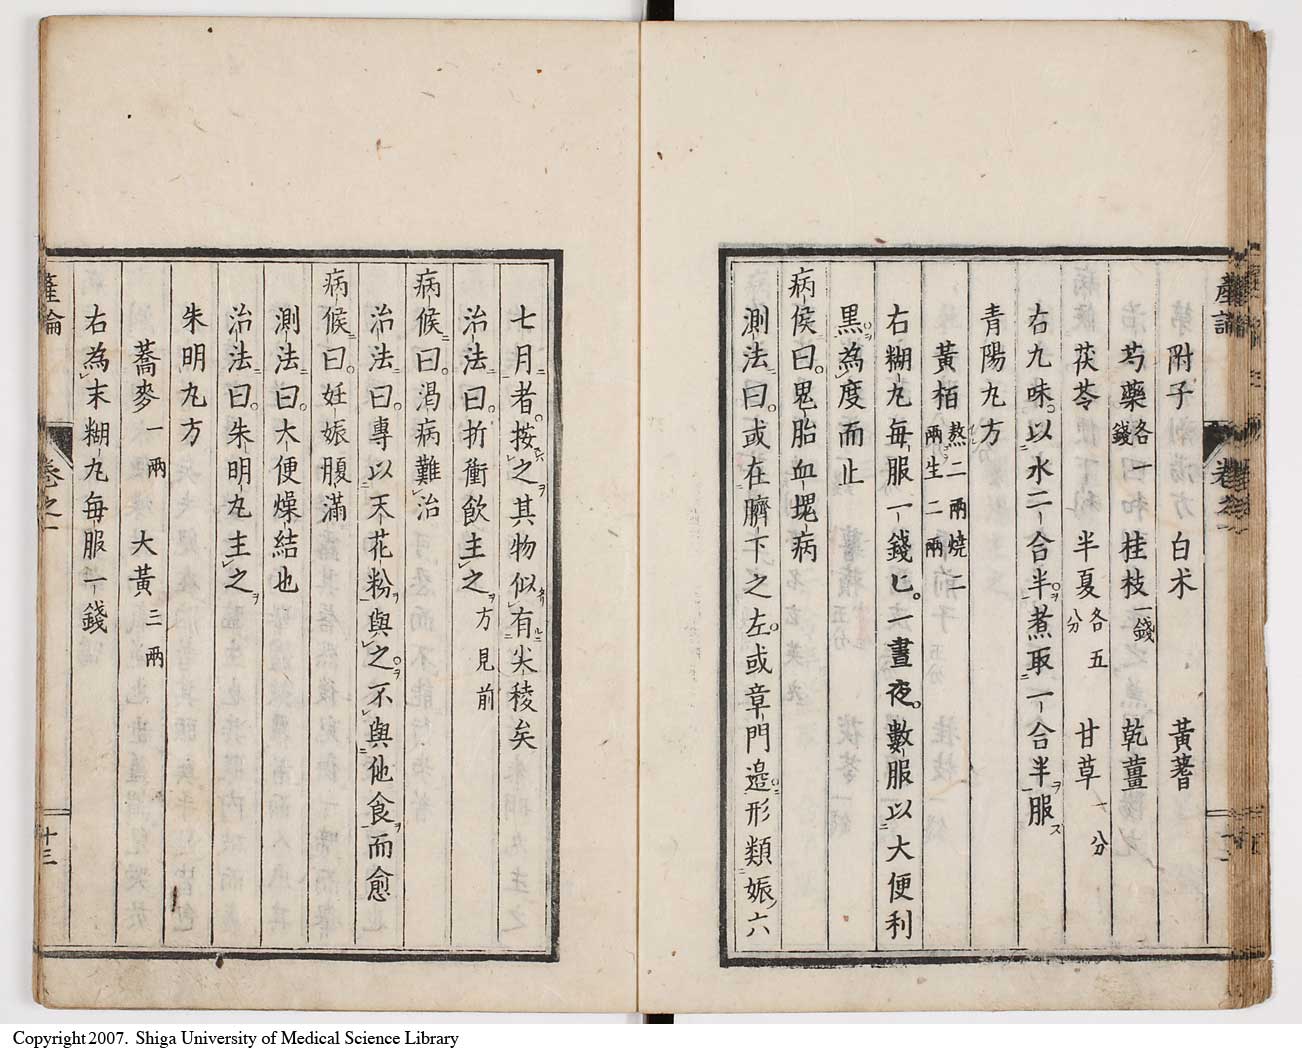 産論
卷之一
附子 白朮 黃蓍
芍藥各一錢 桂枝一錢 乾薑
茯苓 半夏各五分 甘草一分
右九味以水二合半煮取一合半服
青陽丸方
黃栢熬二兩燒二兩生二兩
右糊丸每服一錢匕一晝夜數服以大便利
黑為度而止
病候曰鬼胎血塊病
測法曰或在臍下之左或章門邉形類娠六
七月者按之其物似有尖稜矣
治法曰折衝飲主之方見前
病候曰渴病難治
治法曰專以天花粉與之不與他食而愈
病候曰妊娠腹滿
測法曰大便燥結也
治法曰朱明丸主之
朱明丸方
蕎麥一兩 大黃三兩
右為末糊丸每服一錢
産論
卷之一
十三
Copyright 2007. Shiga University of Medical Science Library